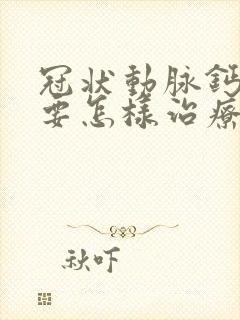 冠状動脉鈣
要怎樣治療
秋吓